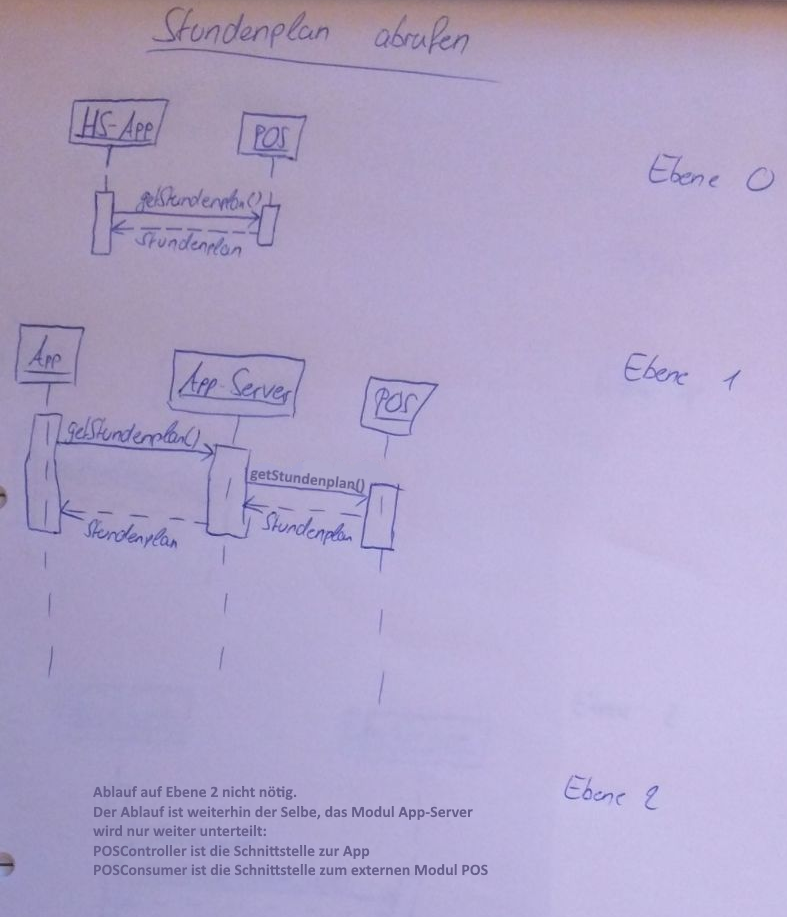 Stundenplan abrufen
HS-App
POS
Ebene 0
getStundenplan()
Stundenplan
App
App-Server
POS
Ebene 1
getStundenplan()
getStundenplan()
Stundenplan
Stundenplan
Ebene 2
Ablauf auf Ebene 2 nicht nötig.
Der Ablauf ist weiterhin der Selbe, das Modul App-Server
wird nur weiter unterteilt:
POSController ist die Schnittstelle zur App
POSConsumer ist die Schnittstelle zum externen Modul POS